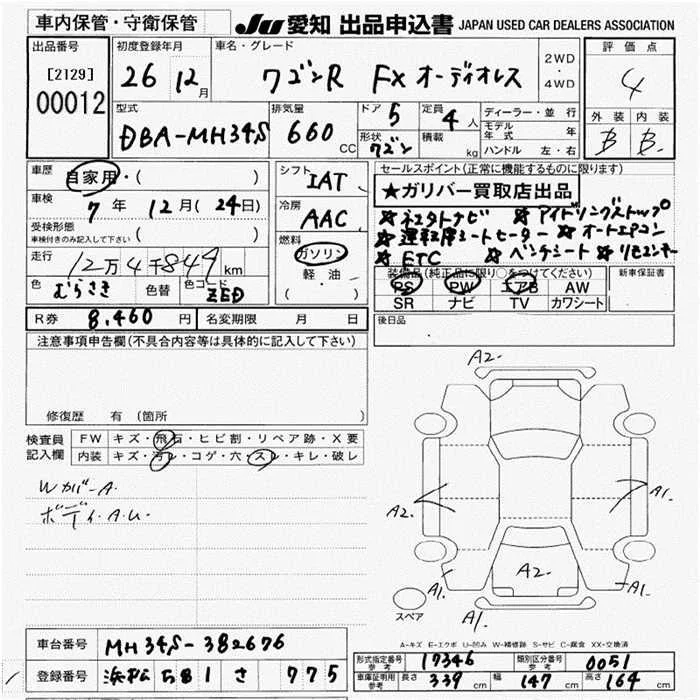 車内保管・守衛保管
JU 愛知 出品申込書 JAPAN USED CAR DEALERS ASSOCIATION
出品番号
[2129]
00012
初度登録年月
26 12月
車名・グレード
ワゴンR FX オーディオレス
2WD
・
4WD
評価点
4
外装 内装
B B
型式
DBA-MH34S
排気量
660 CC
ドア 5
定員 4人
形状 ワゴン
積載 kg
ディーラー・並行
モデル年式 年
ハンドル 左・右
車歴 自家用・( )
車検 7年 12月(24日)
受検形態
車検付きのみ記入して下さい ( )
走行 12万4千849km
色 むらさき 色替 色コード ZED
シフト IAT
冷房 AAC
燃料
ガソリン
軽・油
( ・ )
セールスポイント(正常に機能するものに限ります)
★ガリバー買取店出品
☆ネスタトナビ ☆アイドリングストップ
☆運転席シートヒーター ☆オートエアコン
☆ETC ☆ベンチシート ☆リモコンキー
装備品(純正品に限り○をつけてください)
PS PW エアB AW
SR ナビ TV カワシート
新車保証書
後日品
R券 8,460円 名変期限 月 日
注意事項申告欄(不具合内容等は具体的に記入して下さい)
修復歴 有 (箇所 )
検査員記入欄
FW キズ・飛石・ヒビ割・リペア跡・X要
内装 キズ・汚レ・コゲ・穴・スレ・キレ・破レ
Wカバ-A.
ボディ.A.U.
A2.
A2.
A1.
A2.
A1.
A1.
A1.
スペア
A-キズ E-エクボ U-凹み W-補修跡 S-サビ C-腐食 XX-交換済
車台番号 MH34S-382676
登録番号 浜松 581 さ 775
形式指定番号参考 17346
類別区分番号参考 0051
車庫証明用参考 長さ 339cm 幅 147cm 高さ 164cm